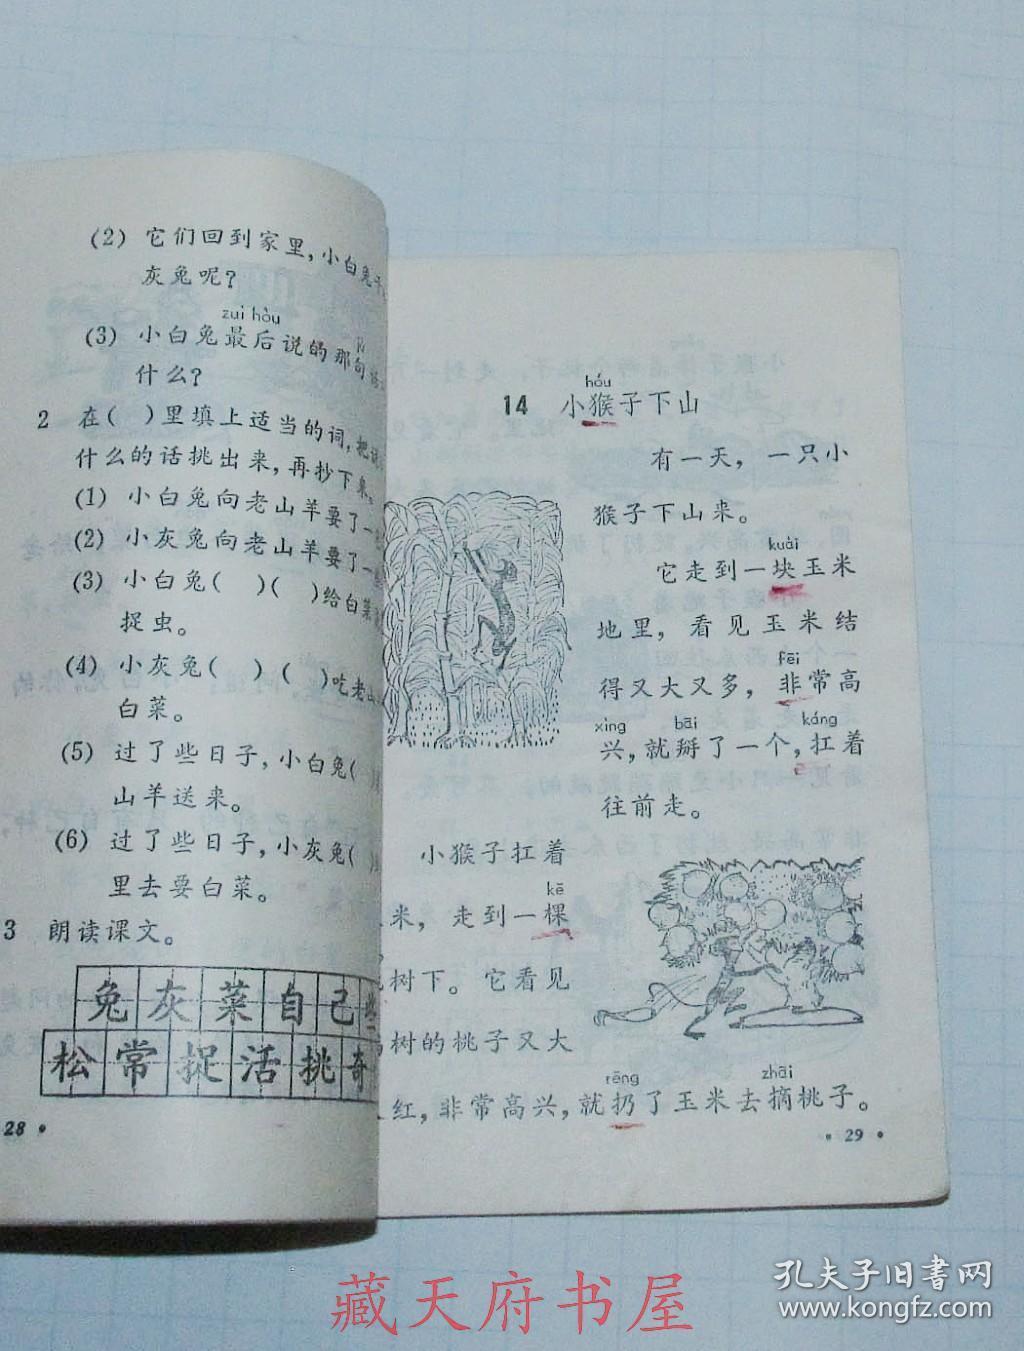 (2) 它们回到家里,小白兔干
灰兔呢?
zuì hòu
(3) 小白兔最后说的那句话
什么?
2 在( )里填上适当的词,把说
什么的话挑出来,再抄下来。
(1) 小白兔向老山羊要了一
(2) 小灰兔向老山羊要了一
(3) 小白兔( )( )给白菜
捉虫。
(4) 小灰兔( )( )吃老山
白菜。
(5) 过了些日子,小白兔(
山羊送来。
(6) 过了些日子,小灰兔(
里去要白菜。
3 朗读课文。
兔灰菜自己些
松常捉活挑奇
28 •
hóu
14 小猴子下山
有一天,一只小
猴子下山来。
kuài
它走到一块玉米
地里,看见玉米结
fēi
得又大又多,非常高
xìng bāi káng
兴,就掰了一个,扛着
往前走。
小猴子扛着
kē
米,走到一棵
树下。它看见
树的桃子又大
rēng zhāi
红,非常高兴,就扔了玉米去摘桃子。
• 29 •
藏天府书屋
孔夫子旧书网
www.kongfz.com